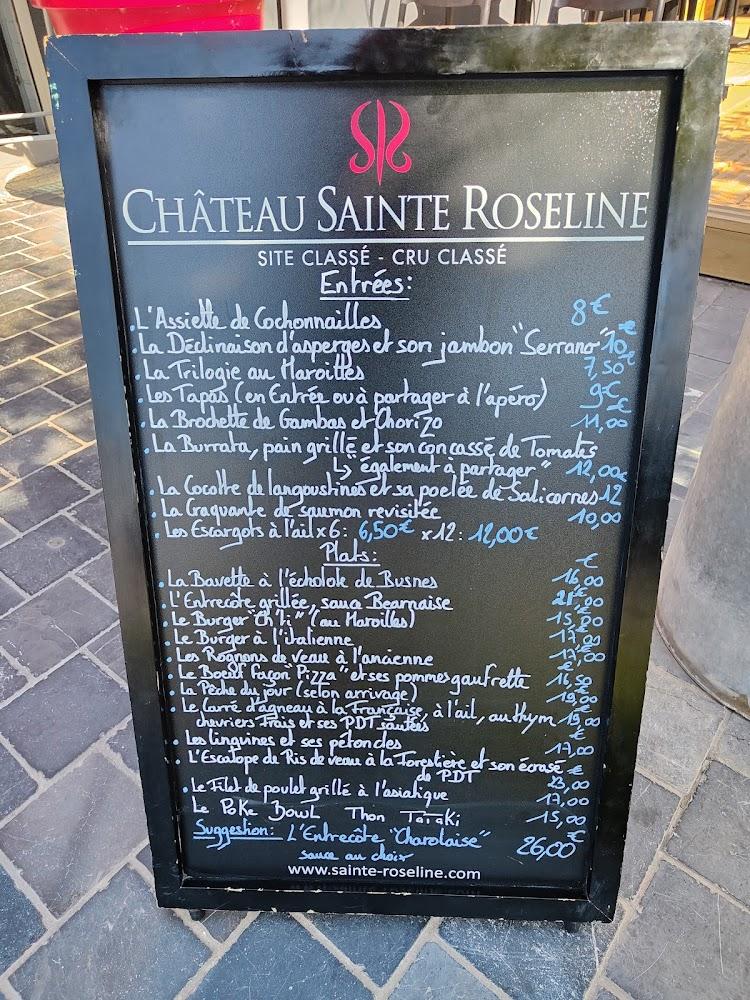 CHÂTEAU SAINTE ROSELINE
SITE CLASSÉ - CRU CLASSÉ
Entrées:
. L'Assiette de Cochonnailles 8€
. La Déclinaison d'asperges et son jambon "Serrano" 10€
. La Trilogie au Maroilles 7,50€
. Les Tapas (en Entrée ou à partager à l'apéro) 9€
. La Brochette de Gambas et Chorizo 11,00€
. La Burrata, pain grillé et son concassé de Tomates
↳ également à partager" 12,00€
. La Cocotte de langoustines et sa poelée de Salicornes 12
. La Craquante de saumon revisitée 10,00
. Les Escargots à l'ail x6: 6,50€ x12: 12,00€
Plats:
. La Bavette à l'écholote de Busnes 16,00€
. L'Entrecôte grillée, sauce Bearnaise 21,00€
. Le Burger "Ch'ti" (au Maroilles) 15,00
. Le Burger à l'italienne 17,00
. Les Rognons de veau à l'ancienne 17,00
. Le Boeuf Façon "Pizza" et ses pommes gaufrette 16,50€
. La Pêche du jour (selon arrivage) 19,00
. Le Carré d'agneau à la Française, à l'ail, au thym 19,00
chevriers Frais et ses PDT sautées
. Les linguines et ses pétoncles 17,00€
. L'Escalope de Ris de veau à la Forestière et son écrasé
de PDT 23,00€
. Le Filet de poulet grillé à l'asiatique 17,00
Le Poke Bowl Thon Tataki 15,00
Suggestion: L'Entrecôte "Charolaise" 26,00€
sauce au choix
www.sainte-roseline.com